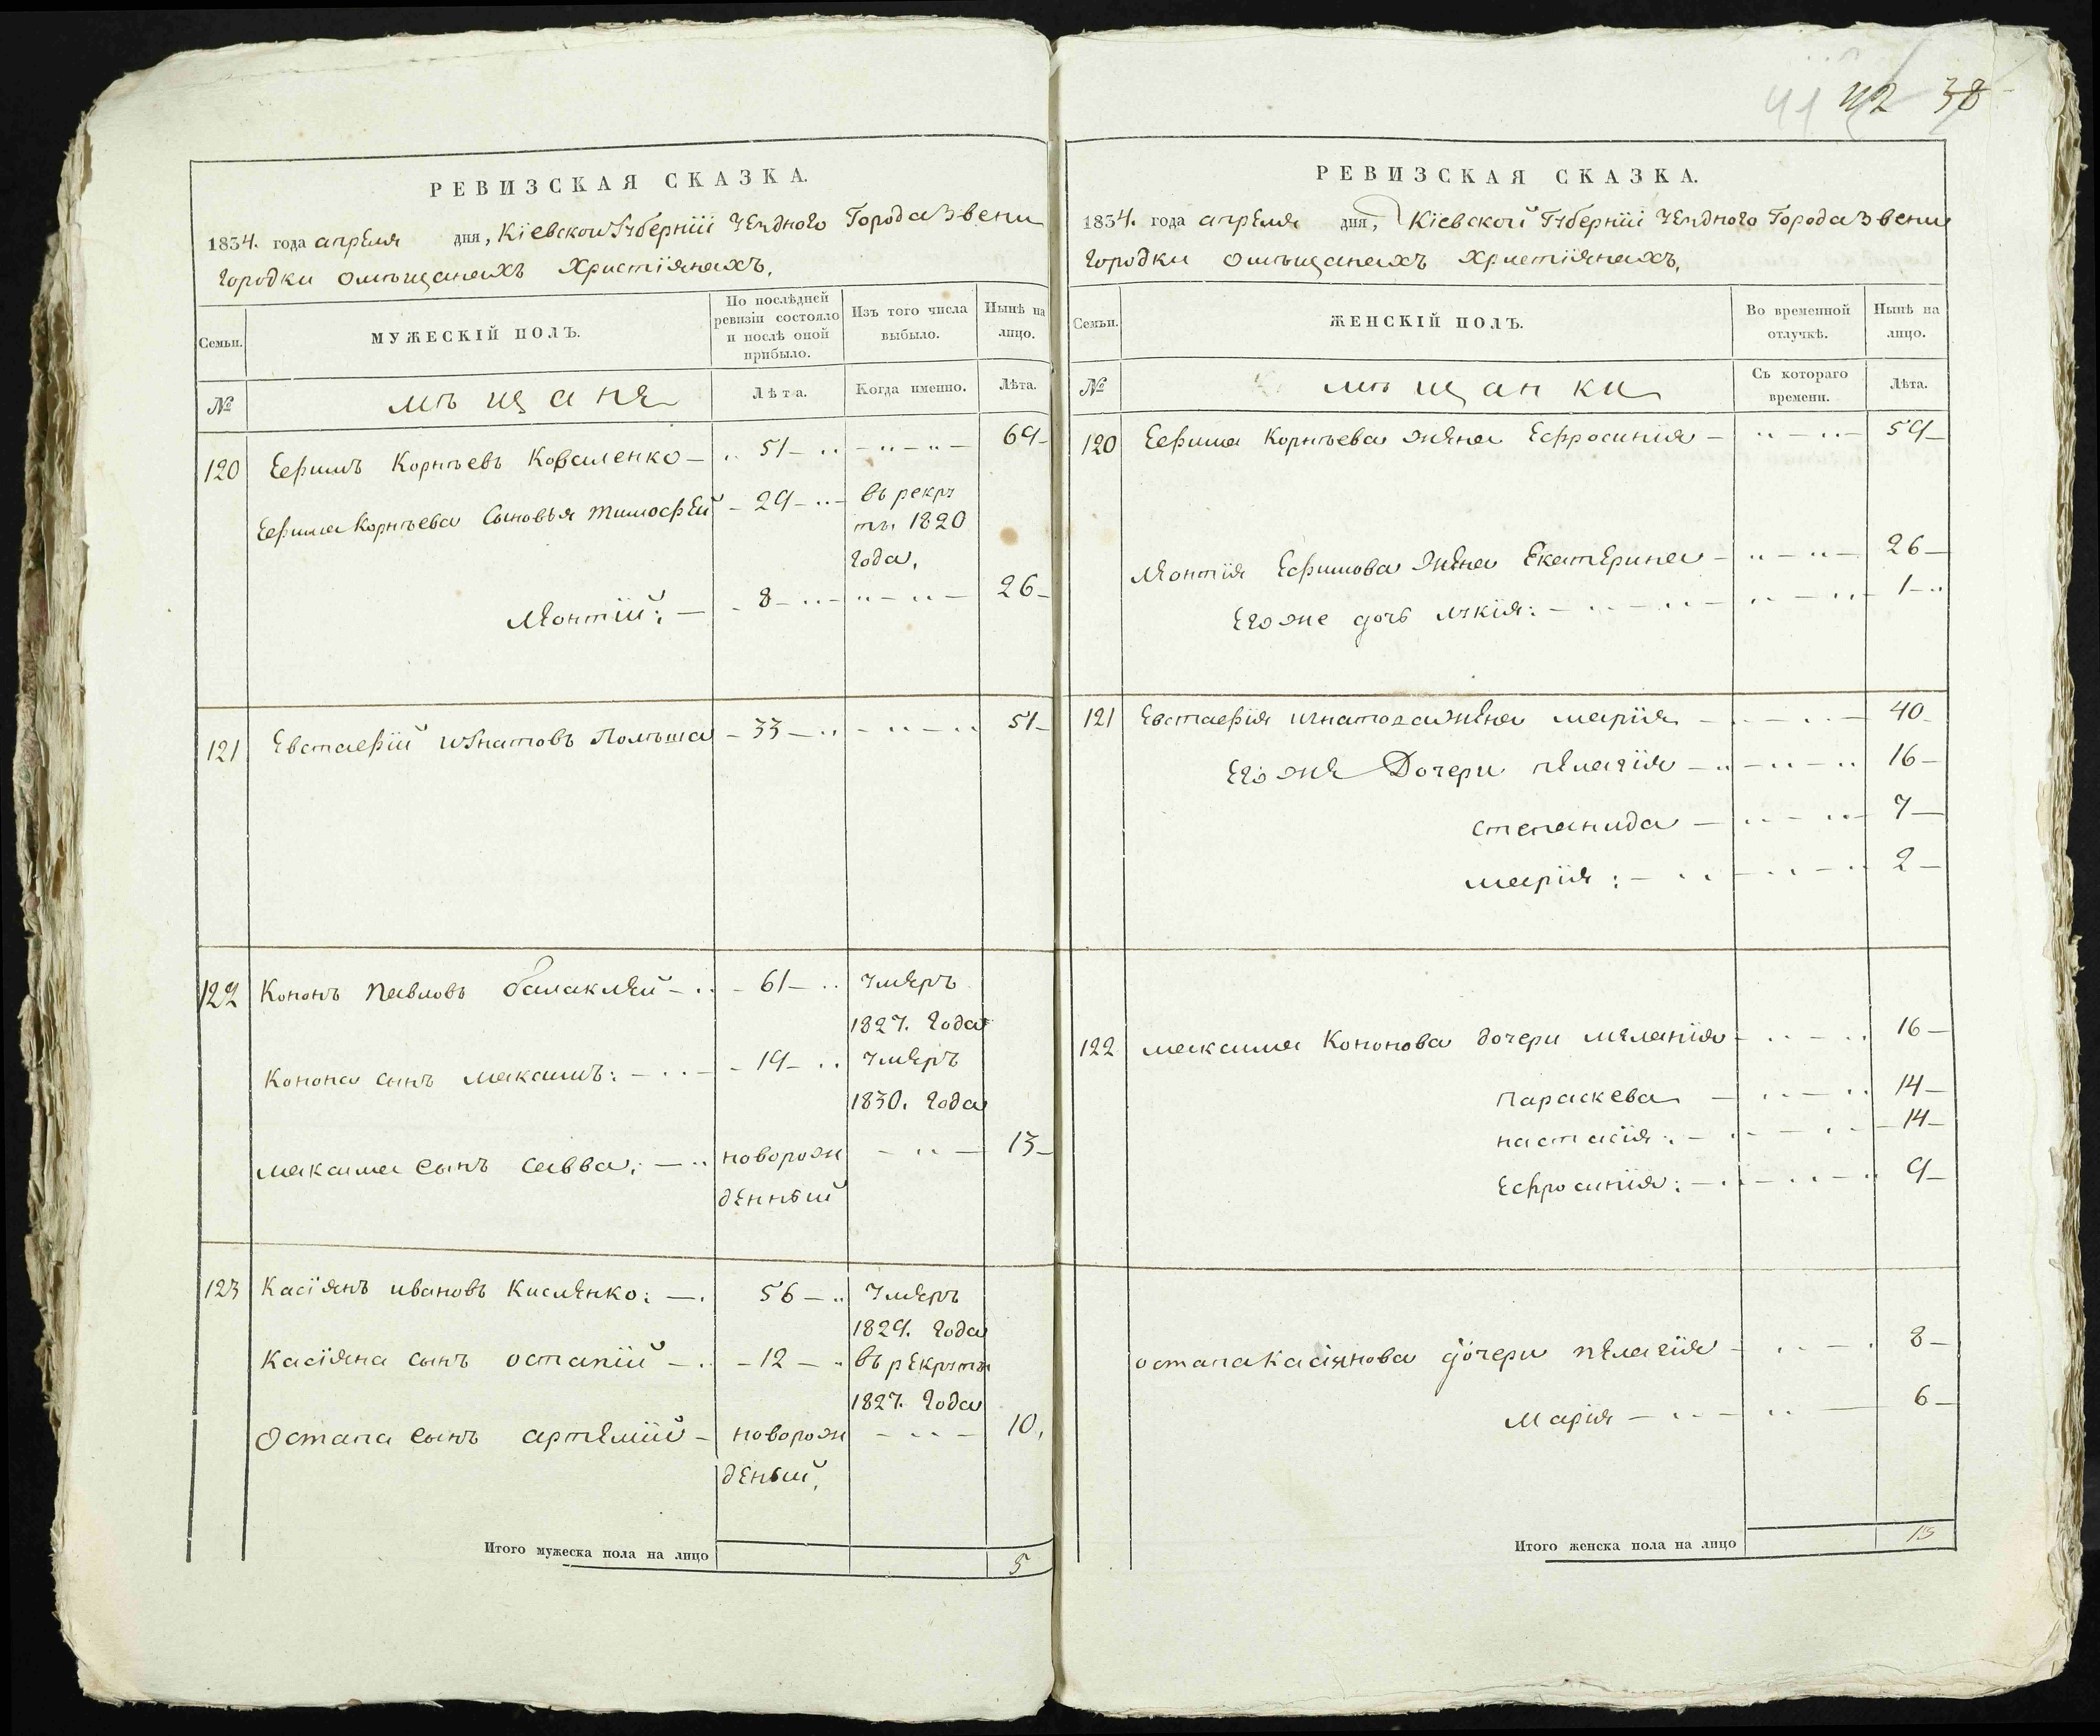 41 42 38
РЕВИЗСКАЯ СКАЗКА.
1834. года апреля дня, Кіевской Губерніи Уездного Города Звени
городки омѣщанахъ Христіянахъ,
Семьи.
МУЖЕСКІЙ ПОЛЪ.
По послѣдней ревизіи состояло и послѣ оной прибыло.
Изъ того числа выбыло.
Нынѣ на лицо.
№
мѣщане
Лѣта.
Когда именно.
Лѣта.
120 Ефимъ Корнѣевъ Коваленко — 51 — 69
Ефима Корнѣева Сыновья тимофей — 29 — въ рекру
тъ. 1820
года,
Леонтій: — 8 — 26
121 Евстафій игнатовъ Полѣша — 33 — 51
122 Кононъ павловъ балаклей — 61 — умеръ
1827. года
Конона сынъ максимъ: — 19 — умеръ
1830. года
максима сынъ савва: — новорож — 13
денный
123 Касіянъ ивановъ Кисленко: — 56 — умеръ
1829. года
Касіяна сынъ остапій — 12 — въ рекруты
1827. года
Остапа сынъ артемій — новорож — 10,
деный,
Итого мужеска пола на лицо 5
РЕВИЗСКАЯ СКАЗКА.
1834. года апреля дня, Кіевской Губерніи Уездного Города Звени
городки омѣщанахъ христіянахъ,
Семьи.
ЖЕНСКІЙ ПОЛЪ.
Во временной отлучкѣ.
Нынѣ на лицо.
№
мѣщанки
Съ котораго времени.
Лѣта.
120 Ефима Корнѣева жена Ефросинія — 59
Леонтія Ефимова жена Екатерина — 26
Его же дочь лукія: — 1
121 Евстафія игнатова жена марія — 40
Его же Дочери пелагія — 16
степанида — 7
марія: — 2
122 максима Кононова дочери меланія — 16
параскева — 14
настасія: — 14
Ефросинія: — 9
остапа Касіянова дочери пелагія — 8
Марія — 6
Итого женска пола на лицо 13